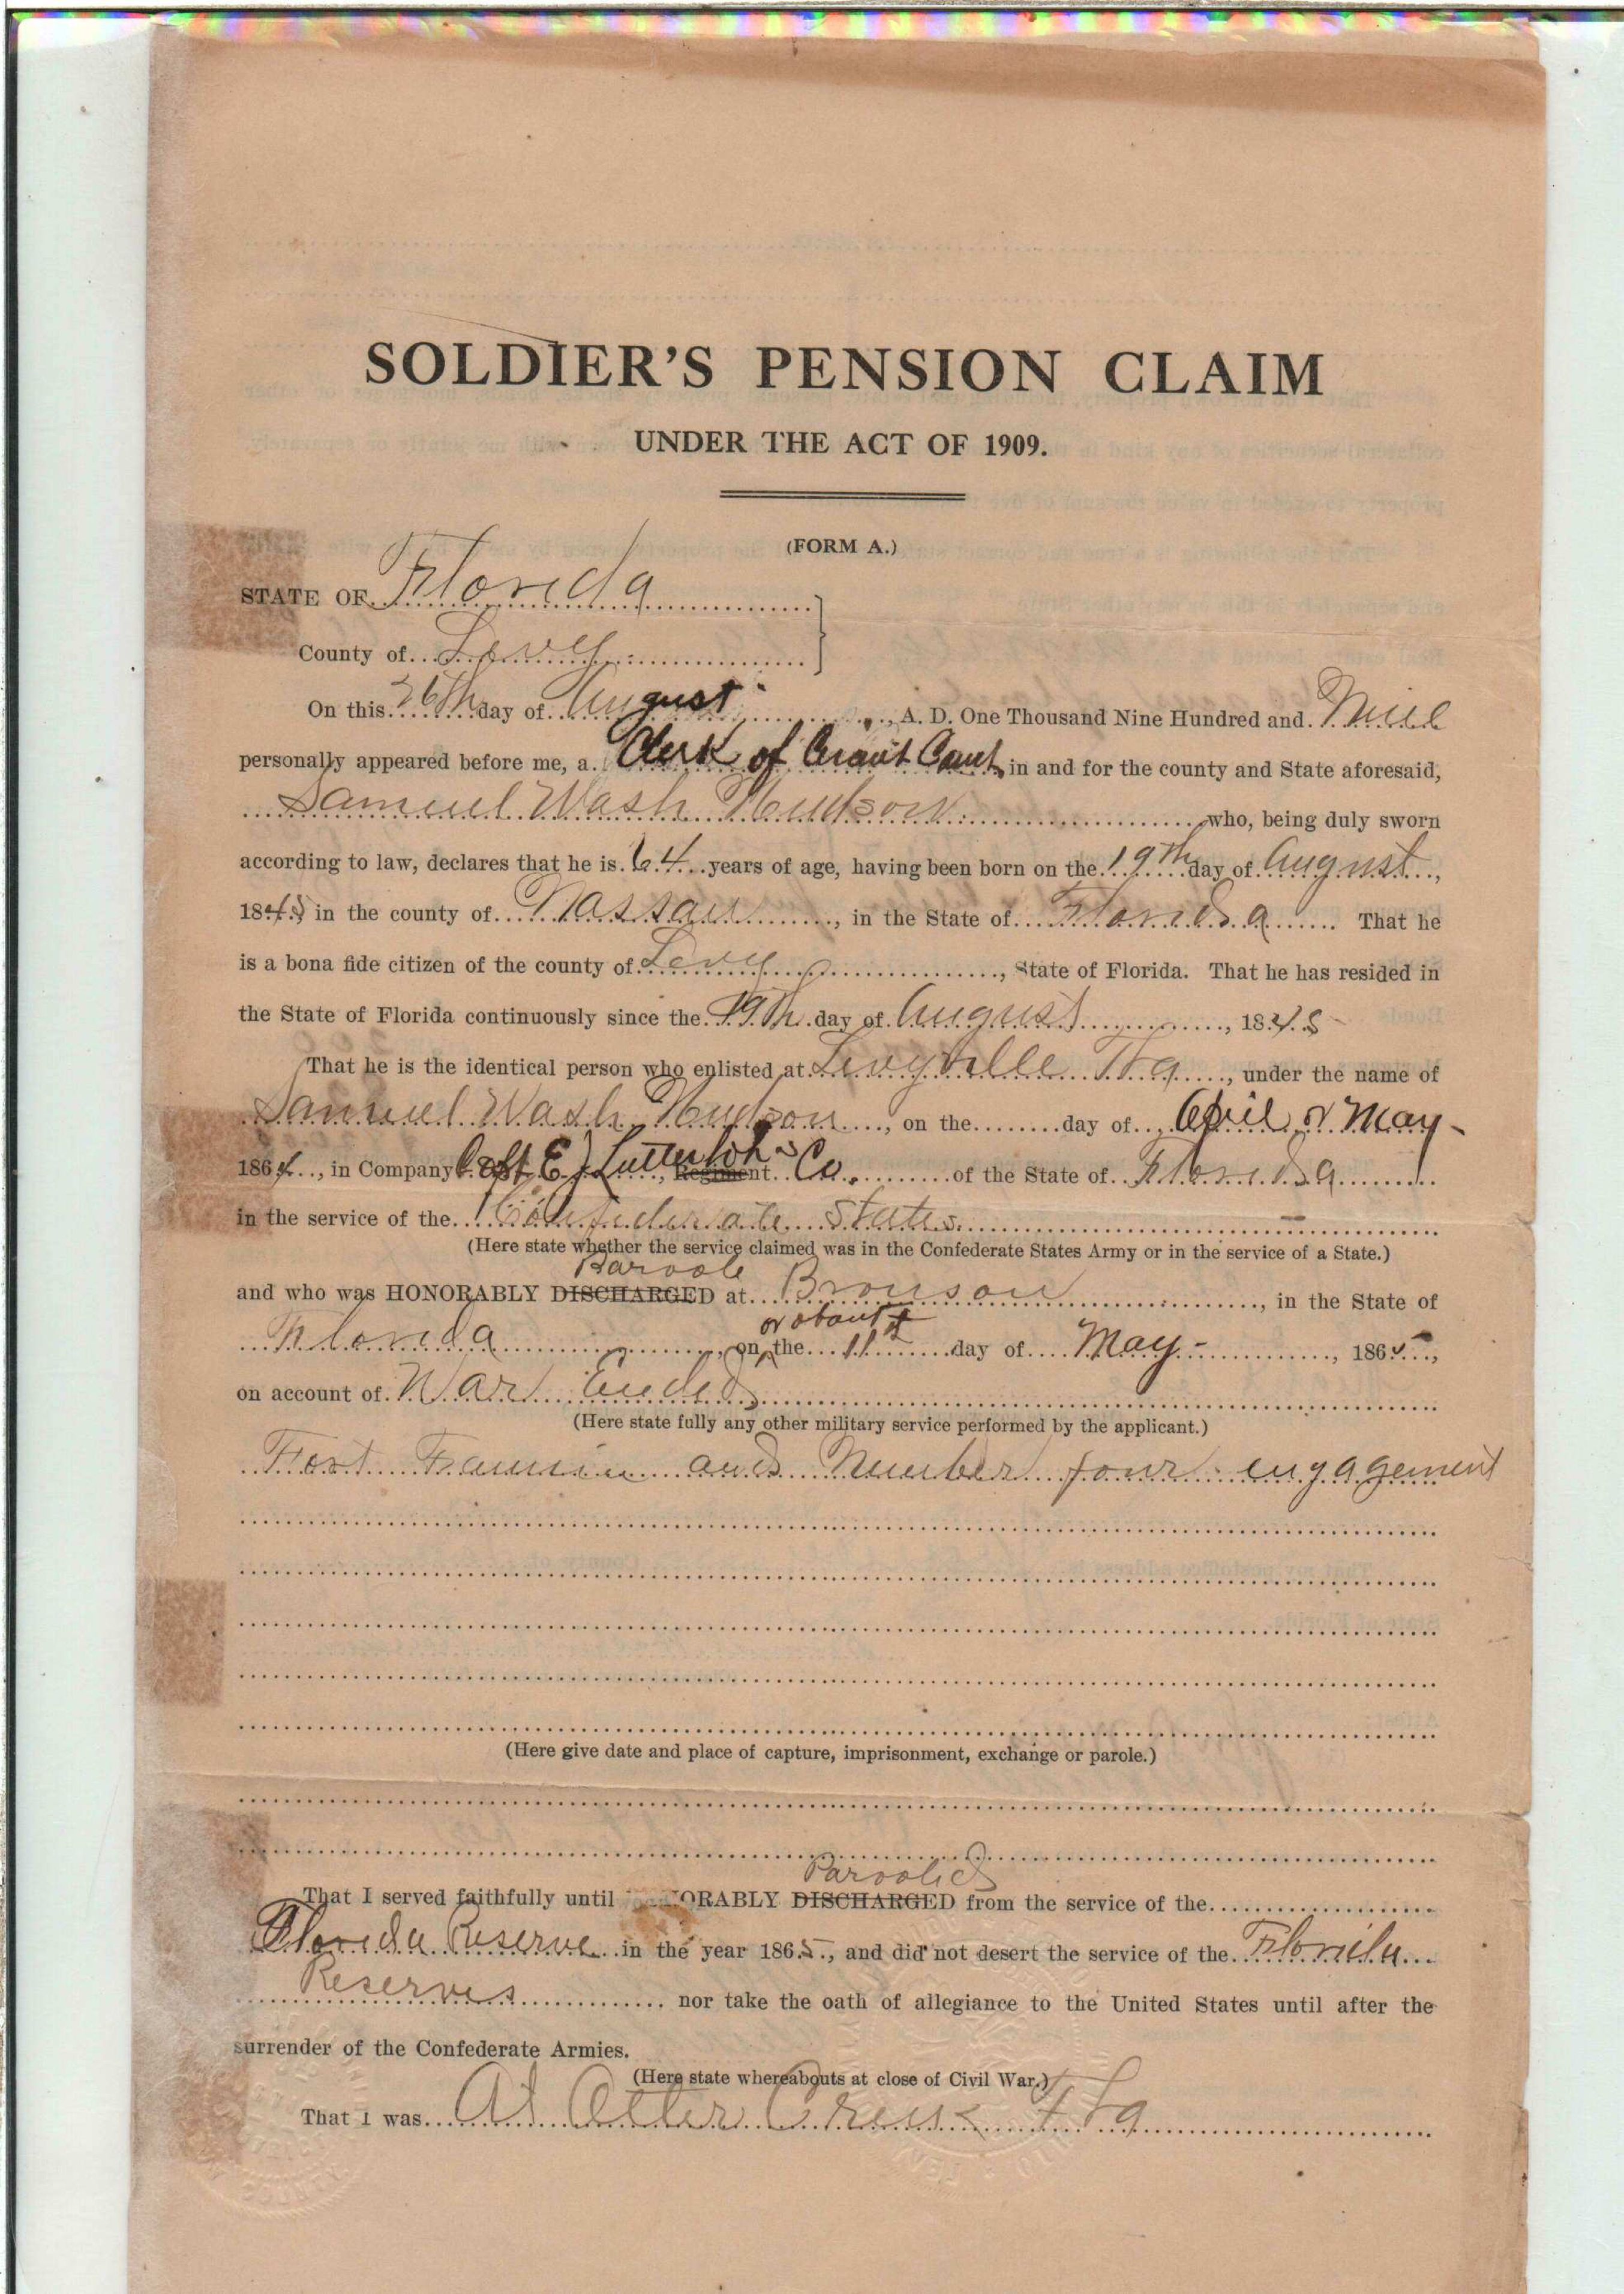 SOLDIER'S PENSION CLAIM
UNDER THE ACT OF 1909.
(FORM A.)
STATE OF Florida
County of Levy
On this 26th day of August, A. D. One Thousand Nine Hundred and Nine
personally appeared before me, a Clerk of Circuit Court in and for the county and State aforesaid,
Samuel Wash Hudson who, being duly sworn
according to law, declares that he is 64 years of age, having been born on the 19th day of August,
1845 in the county of Nassau, in the State of Florida. That he
is a bona fide citizen of the county of Levy, State of Florida. That he has resided in
the State of Florida continuously since the 19th day of August, 1845
That he is the identical person who enlisted at Levyville Fla, under the name of
Samuel Wash Hudson, on the day of April or May
1864, in Company Capt E J Lutterloh's, Regiment Co. of the State of Florida
in the service of the Confederate States
(Here state whether the service claimed was in the Confederate States Army or in the service of a State.)
Paroole
and who was HONORABLY DISCHARGED at Bronson, in the State of
or about
Florida, on the 11th day of May, 1865,
on account of War Ended
(Here state fully any other military service performed by the applicant.)
Fort and Number four engagement
(Here give date and place of capture, imprisonment, exchange or parole.)
Paroolied
That I served faithfully until ORABLY DISCHARGED from the service of the
Florida Reserve in the year 1865, and did not desert the service of the Florida
Reserves nor take the oath of allegiance to the United States until after the
surrender of the Confederate Armies.
(Here state whereabouts at close of Civil War.)
That I was At Otter Creek Fla